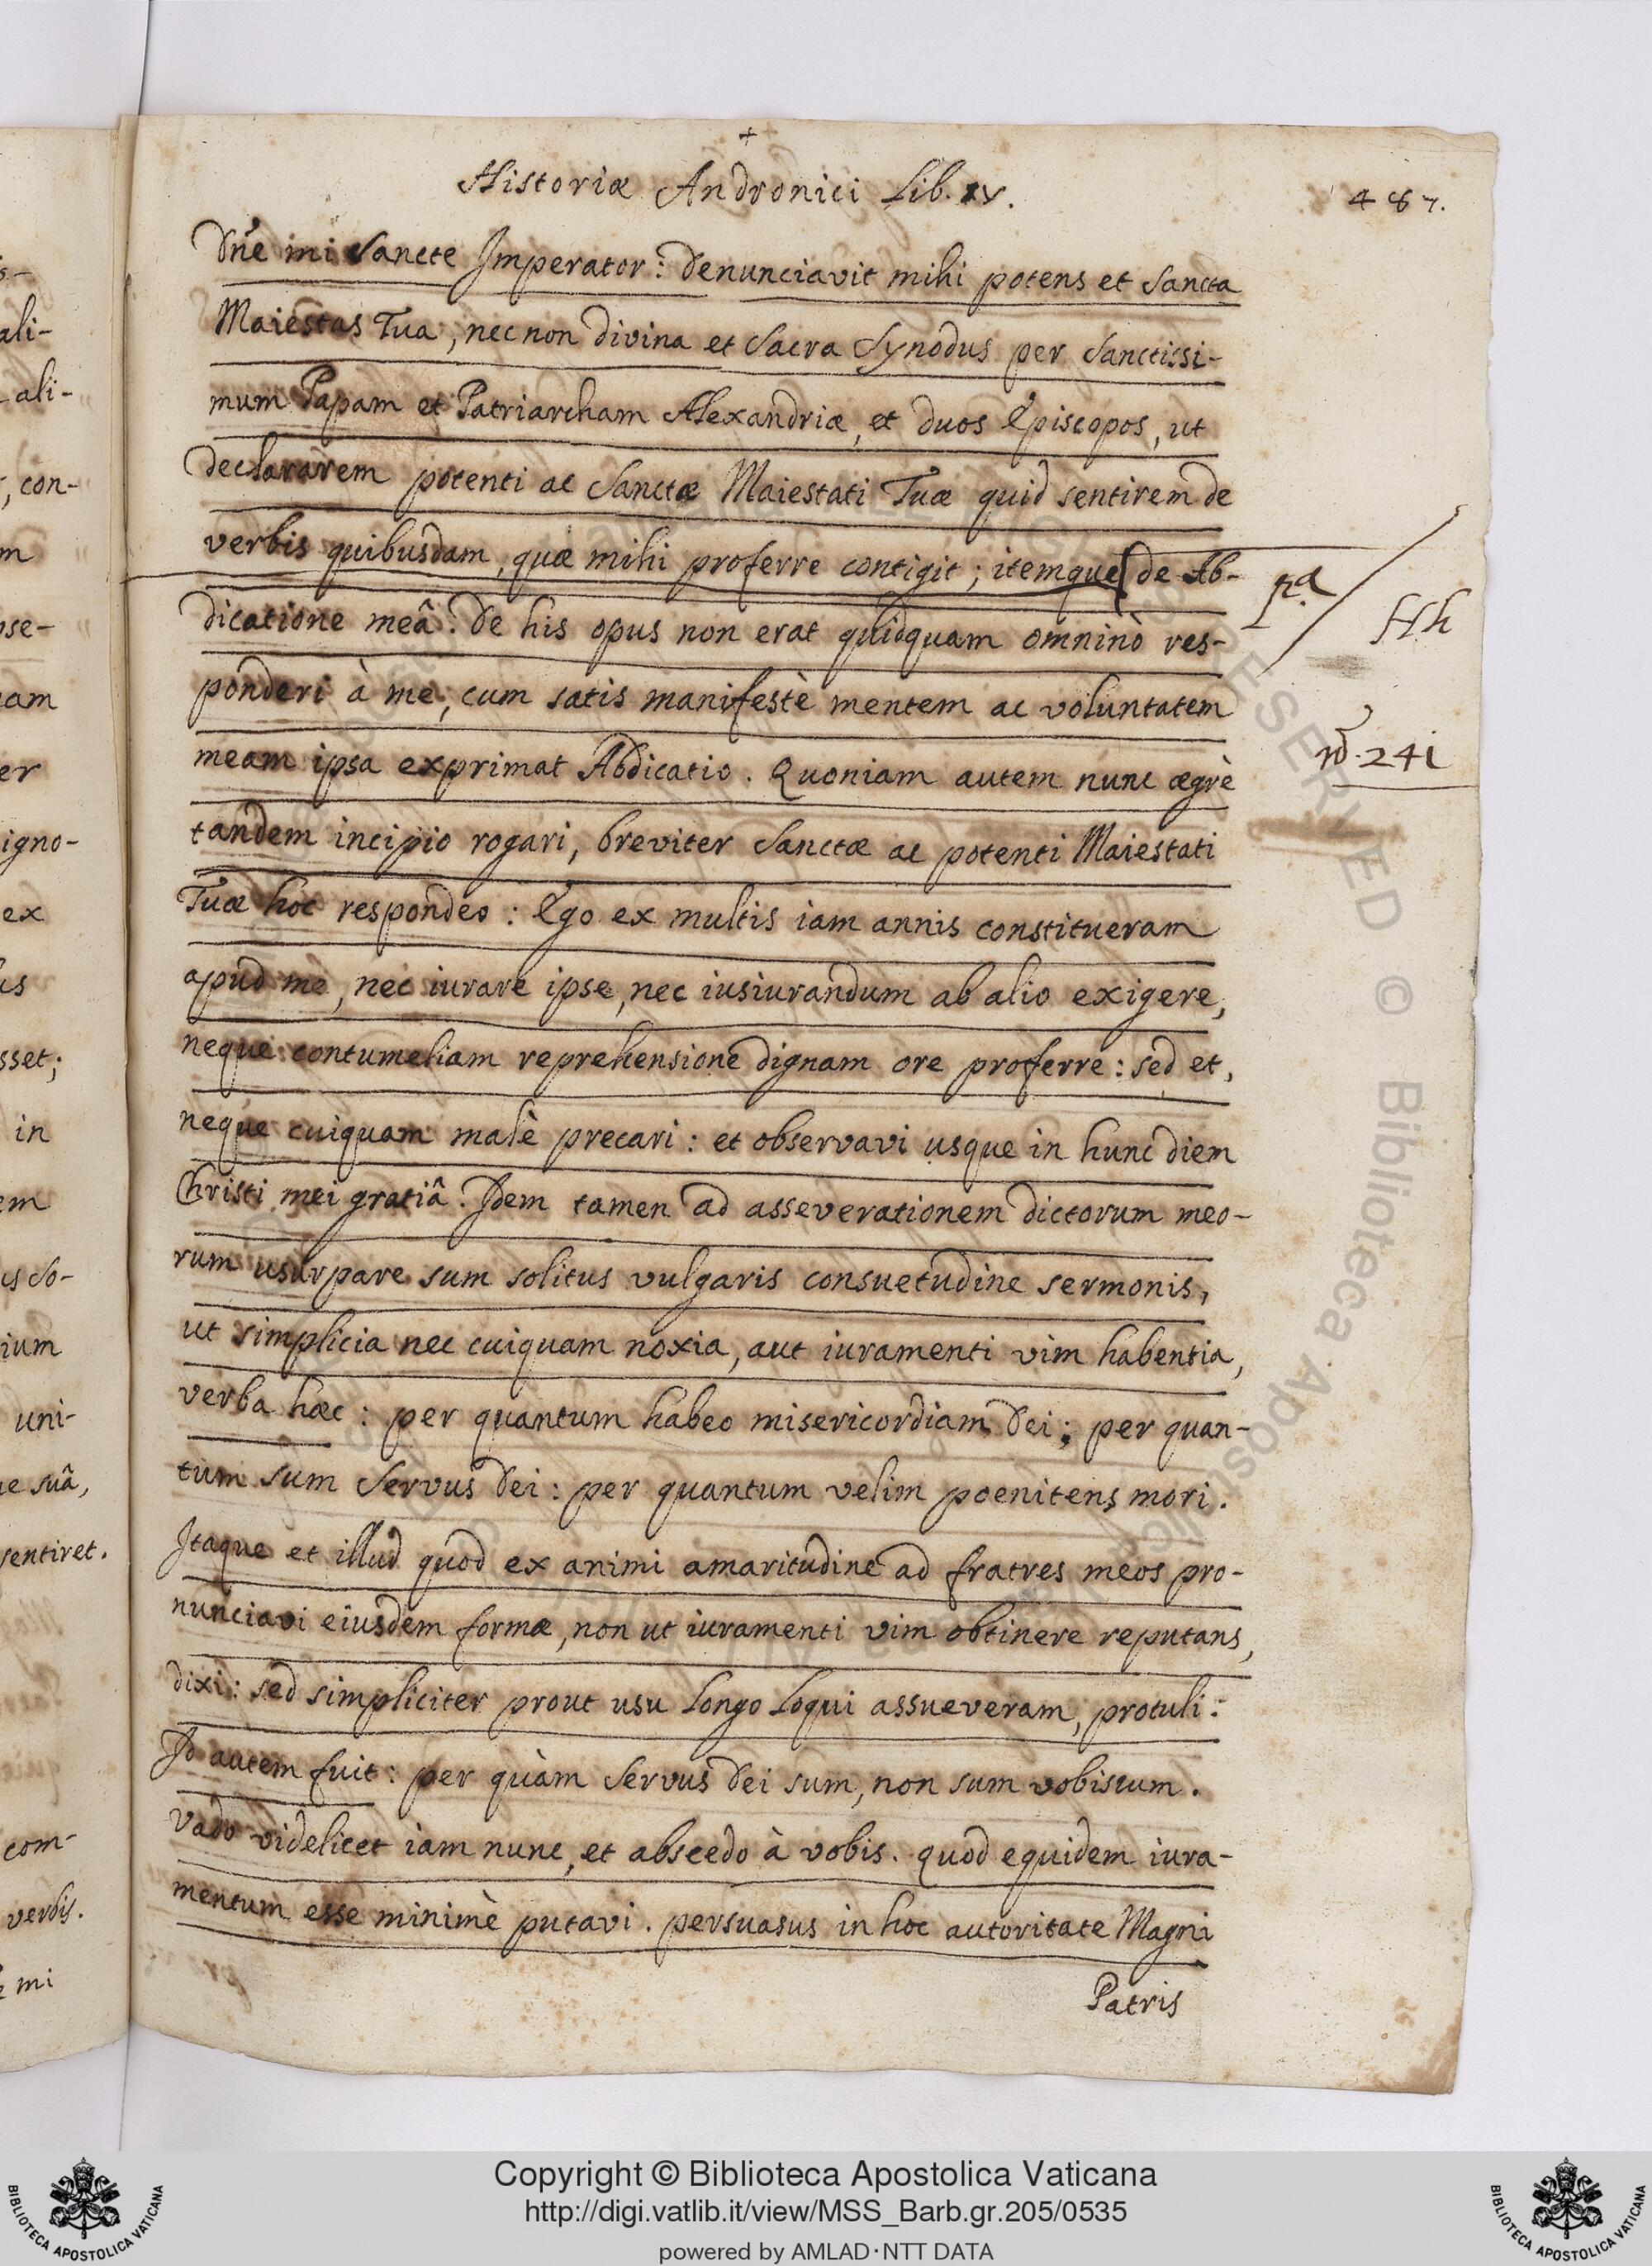 +
Historiæ Andronici Lib. IV.
487.
Dñe mi Sancte Imperator: denunciavit mihi potens et Sancta
Maiestas Tua, nec non divina et Sacra Synodus per Sanctissi-
mum Papam et Patriarcham Alexandriæ, et duos Episcopos, ut
declararem potenti ac Sanctæ Maiestati Tuæ quid sentirem de
verbis quibusdam, quæ mihi proferre contigit; itemque [de Ab-
dicatione meâ. De his opus non erat quidquam omninò res-
ponderi à me, cum satis manifestè mentem ac voluntatem
meam ipsa exprimat Abdicatio. Quoniam autem nunc ægrè
tandem incipio rogari, breviter Sanctæ ac potenti Maiestati
Tuæ hoc respondeo: Ego ex multis iam annis constitueram
apud me, nec iurare ipse, nec iusiurandum ab alio exigere,
neque contumeliam reprehensione dignam ore proferre: sed et,
neque cuiquam malè precari: et observavi usque in hunc diem
Christi mei gratiâ. Idem tamen ad asseverationem dictorum meo-
rum usurpare sum solitus vulgaris consuetudine sermonis,
ut simplicia nec cuiquam noxia, aut iuramenti vim habentia,
verba hæc: per quantum habeo misericordiam Dei; per quan-
tum sum Servus Dei: per quantum velim poenitens mori.
Itaque et illud quod ex animi amaritudine ad fratres meos pro-
nunciavi eiusdem formæ, non ut iuramenti vim obtinere reputans,
dixi: sed simpliciter prout usu longo loqui assueveram, protuli:
Id autem fuit: per quàm Servus Dei sum, non sum vobiscum.
Vado videlicet iam nunc, et abscedo à vobis. quod equidem iura-
mentum esse minimè putavi. persuasus in hoc autoritate Magni
Patris
Hh
241
s-
ali-
ali-
, con-
m
se-
am
er
igno-
ex
us
sset;
in
em
us So-
ium
uni-
e suâ,
sentiret.
com-
verbis.
mi
RESERVED © Biblioteca Apostolica
Copyright © Biblioteca Apostolica Vaticana
http://digi.vatlib.it/view/MSS_Barb.gr.205/0535
powered by AMLAD·NTT DATA
BIBLIOTECA APOSTOLICA VATICANA
BIBLIOTECA APOSTOLICA VATICANA